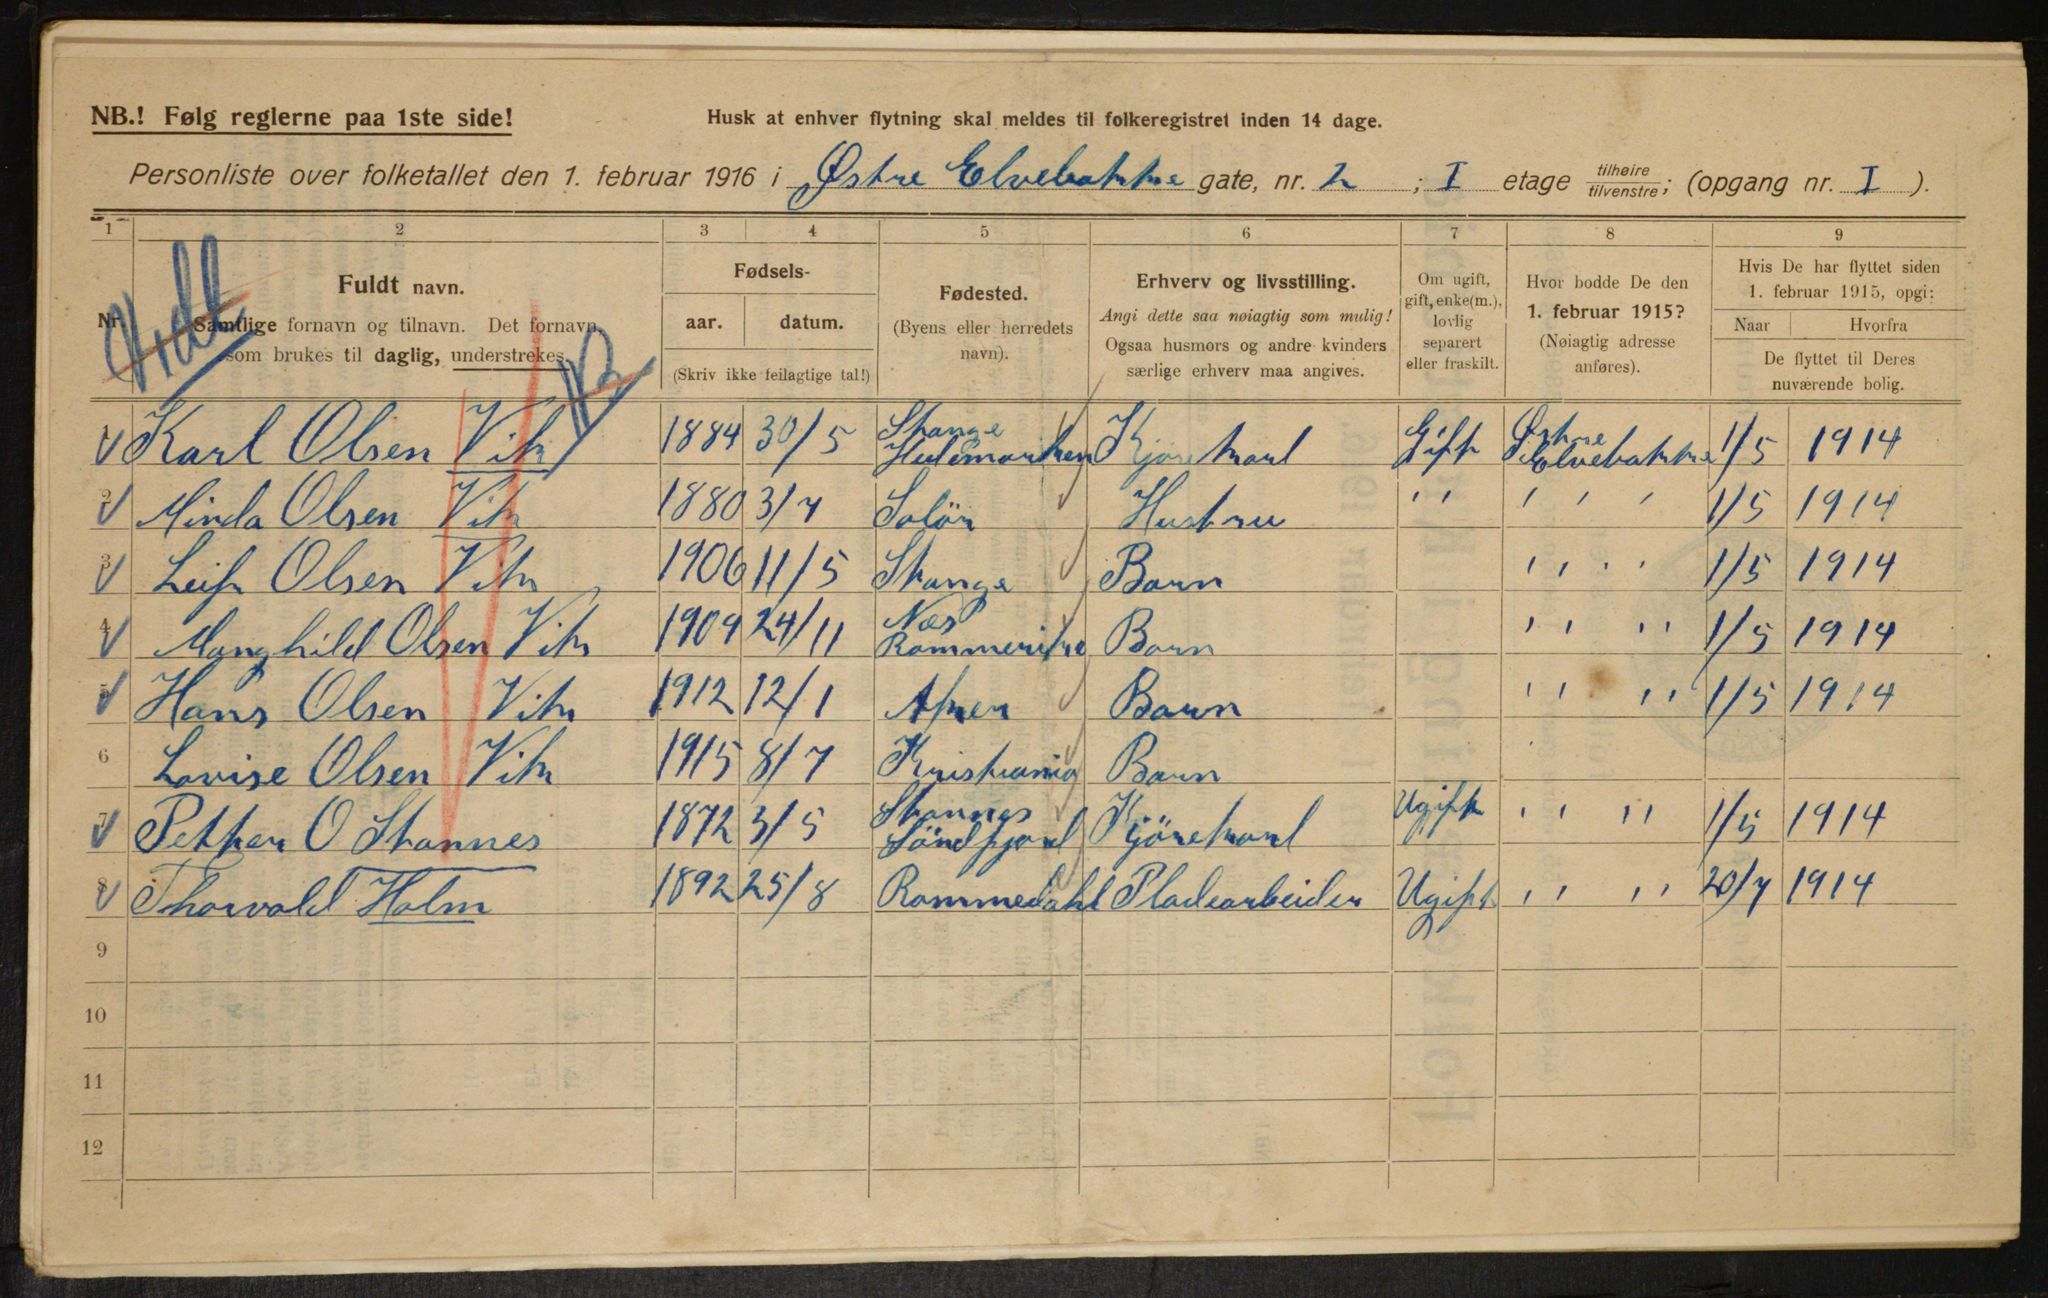 NB.! Følg reglerne paa 1ste side!
Husk at enhver flytning skal meldes til folkeregistret inden 14 dage.
Personliste over folketallet den 1. februar 1916 i Østre Elvebakke gate, nr. 2 ; I etage tilhøire/tilvenstre; (opgang nr. I ).
1 2 3 4 5 6 7 8 9
Nr.
Fuldt navn.
Samtlige fornavn og tilnavn. Det fornavn,
som brukes til daglig, understrekes.
Fødsels-
aar. datum.
(Skriv ikke feilagtige tal!)
Fødested.
(Byens eller herredets
navn).
Erhverv og livsstilling.
Angi dette saa nøiagtig som mulig!
Ogsaa husmors og andre kvinders
særlige erhverv maa angives.
Om ugift,
gift, enke(m.),
lovlig
separert
eller fraskilt.
Hvor bodde De den
1. februar 1915?
(Nøiagtig adresse
anføres).
Hvis De har flyttet siden
1. februar 1915, opgi:
Naar Hvorfra
De flyttet til Deres
nuværende bolig.
1 Karl Olsen Vik 1884 30/5 Stange Hedemarken Kjørekarl Gift Østre Elvebakke 1/5 1914
2 Minda Olsen Vik 1880 3/7 Solör Hustru " ' ' ' 1/5 1914
3 Leif Olsen Vik 1906 11/5 Stange Barn ' ' ' ' 1/5 1914
4 Manghild Olsen Vik 1909 24/11 Næs Rommerike Barn ' ' ' ' 1/5 1914
5 Hans Olsen Vik 1912 12/1 Aker Barn ' ' ' ' 1/5 1914
6 Lovise Olsen Vik 1915 8/7 Kristiania Barn
7 Petter O Stannes 1872 3/5 Stannes Söndfjord Kjörekarl Ugift ' ' ' ' 1/5 1914
8 Thorvald Holm 1892 25/8 Rommedahl Pladearbeider Ugift ' ' ' ' 20/7 1914
9
10
11
12